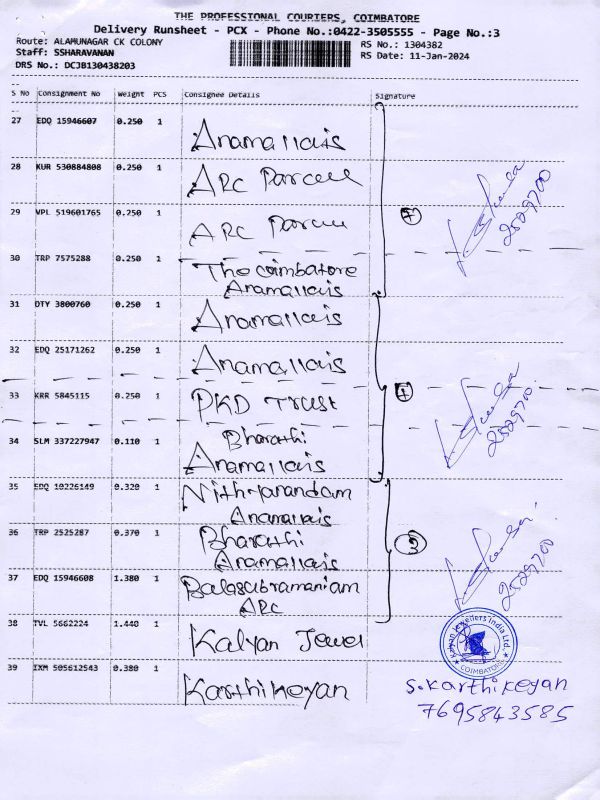 THE PROFESSIONAL COURIERS, COIMBATORE
Delivery Runsheet - PCX - Phone No.:0422-3505555 - Page No.:3
Route: ALAMUNAGAR CK COLONY
RS No.: 1304382
Staff: SSHARAVANAN
RS Date: 11-Jan-2024
DRS No.: DCJB130438203
S No Consignment No Weight PCS Consignee Details Signature
27 EDQ 15946607 0.250 1 Anamallais
28 KUR 530884808 0.250 1 ARC Parcel
29 VPL 519601765 0.250 1 ARC Parcel
30 TRP 7575288 0.250 1 The Coimbatore
Anamallais
31 DTY 3800760 0.250 1 Anamallais
32 EDQ 25171262 0.250 1 Anamallais
33 KRR 5845115 0.250 1 PKD Trust
34 SLM 337227947 0.110 1 Bharathi
Anamallais
35 EDQ 10226149 0.320 1 Nithyanandam
Anamallais
36 TRP 2525287 0.370 1 Bharathi
Anamallais
37 EDQ 15946608 1.380 1 Balasubramaniam
ARC
38 TVL 5662224 1.440 1 Kalyan Jewel
39 IXM 505612543 0.380 1 Karthikeyan
3
Kalyan Jewellers India Ltd.
COIMBATORE
S.Karthikeyan
7695843585